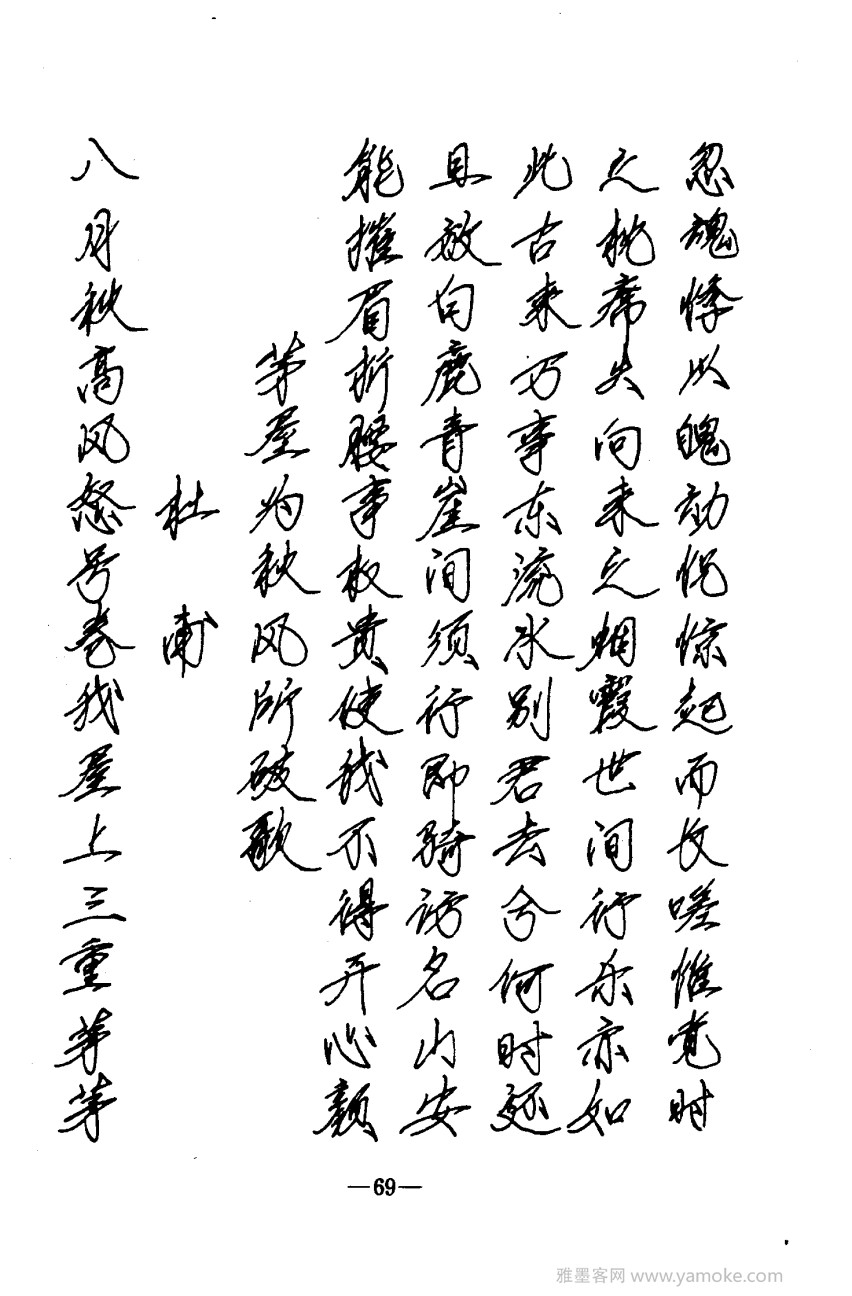 忽魂悸以魄动恍惊起而长嗟惟觉时
之枕席失向来之烟霞世间行乐亦如
此古来万事东流水别君去兮何时还
且放白鹿青崖间须行即骑访名山安
能摧眉折腰事权贵使我不得开心颜
茅屋为秋风所破歌
杜甫
八月秋高风怒号卷我屋上三重茅茅
—69—
雅墨客网 www.yamoke.com